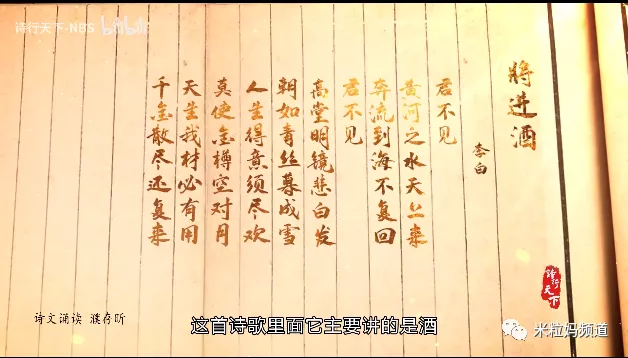 诗行天下-NBS bilibili
将进酒
李白
君不见
黄河之水天上来
奔流到海不复回
君不见
高堂明镜悲白发
朝如青丝暮成雪
人生得意须尽欢
莫使金樽空对月
天生我材必有用
千金散尽还复来
诗行天下
诗文诵读 濮存昕
这首诗歌里面它主要讲的是酒
米粒妈频道